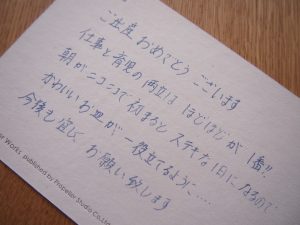 ご出産おめでとうございます
仕事と育児の両立は ほどほどが1番!!
朝がニコニコで初まると ステキな1日になるので
かわいいお皿が一役立てるように……
今後も宜しくお願い致します
Works, published by Propeller Studio Co.,Ltd